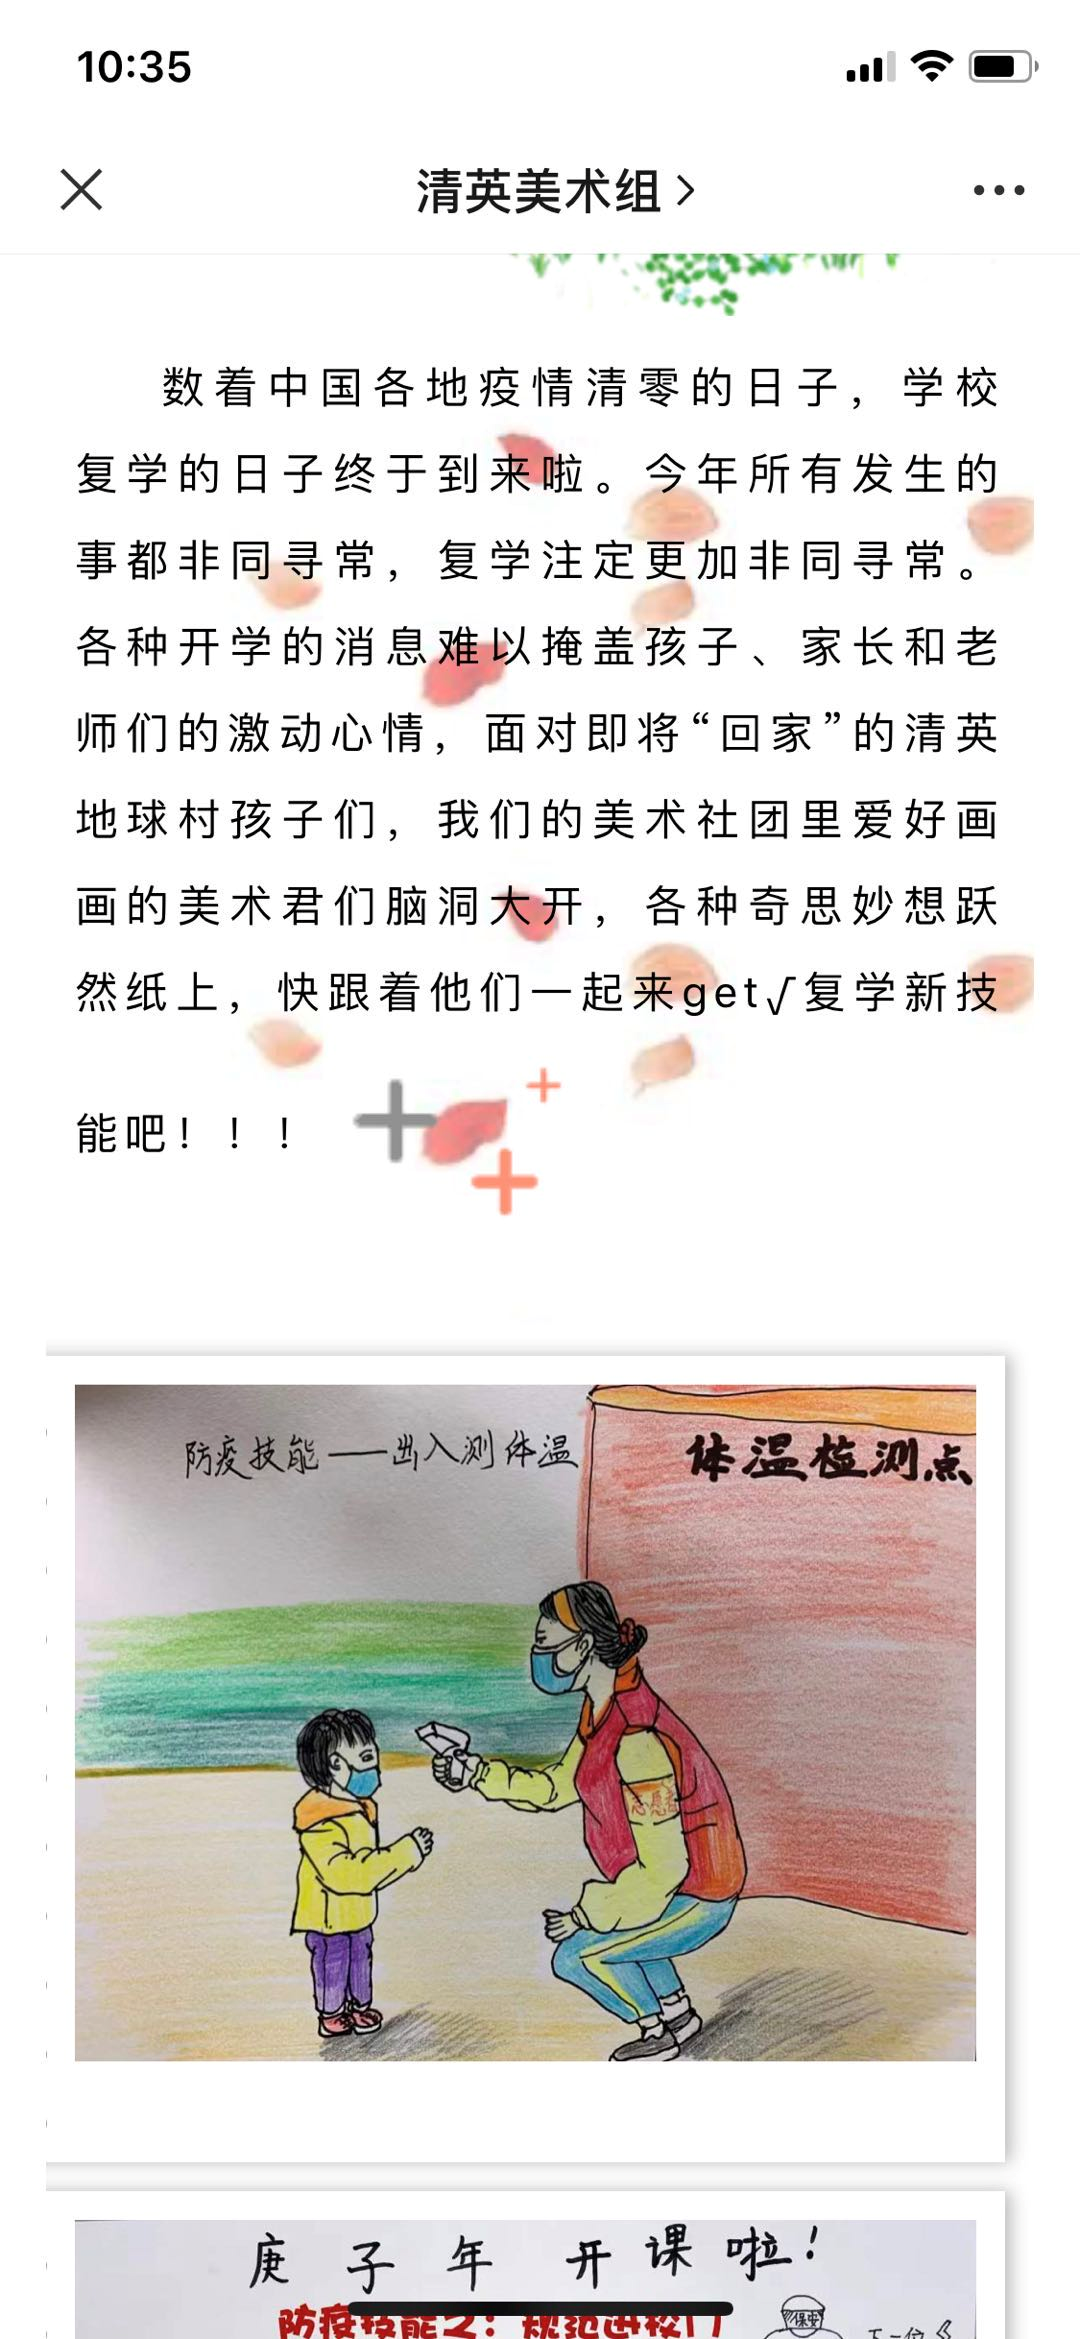 10:35
清英美术组
数着中国各地疫情清零的日子，学校
复学的日子终于到来啦。今年所有发生的
事都非同寻常，复学注定更加非同寻常。
各种开学的消息难以掩盖孩子、家长和老
师们的激动心情，面对即将“回家”的清英
地球村孩子们，我们的美术社团里爱好画
画的美术君们脑洞大开，各种奇思妙想跃
然纸上，快跟着他们一起来get√复学新技
能吧！！！
防疫技能——出入测体温
体温检测点
志愿者
庚子年开课啦！
防疫技能之：规范进校门
保安
下一位